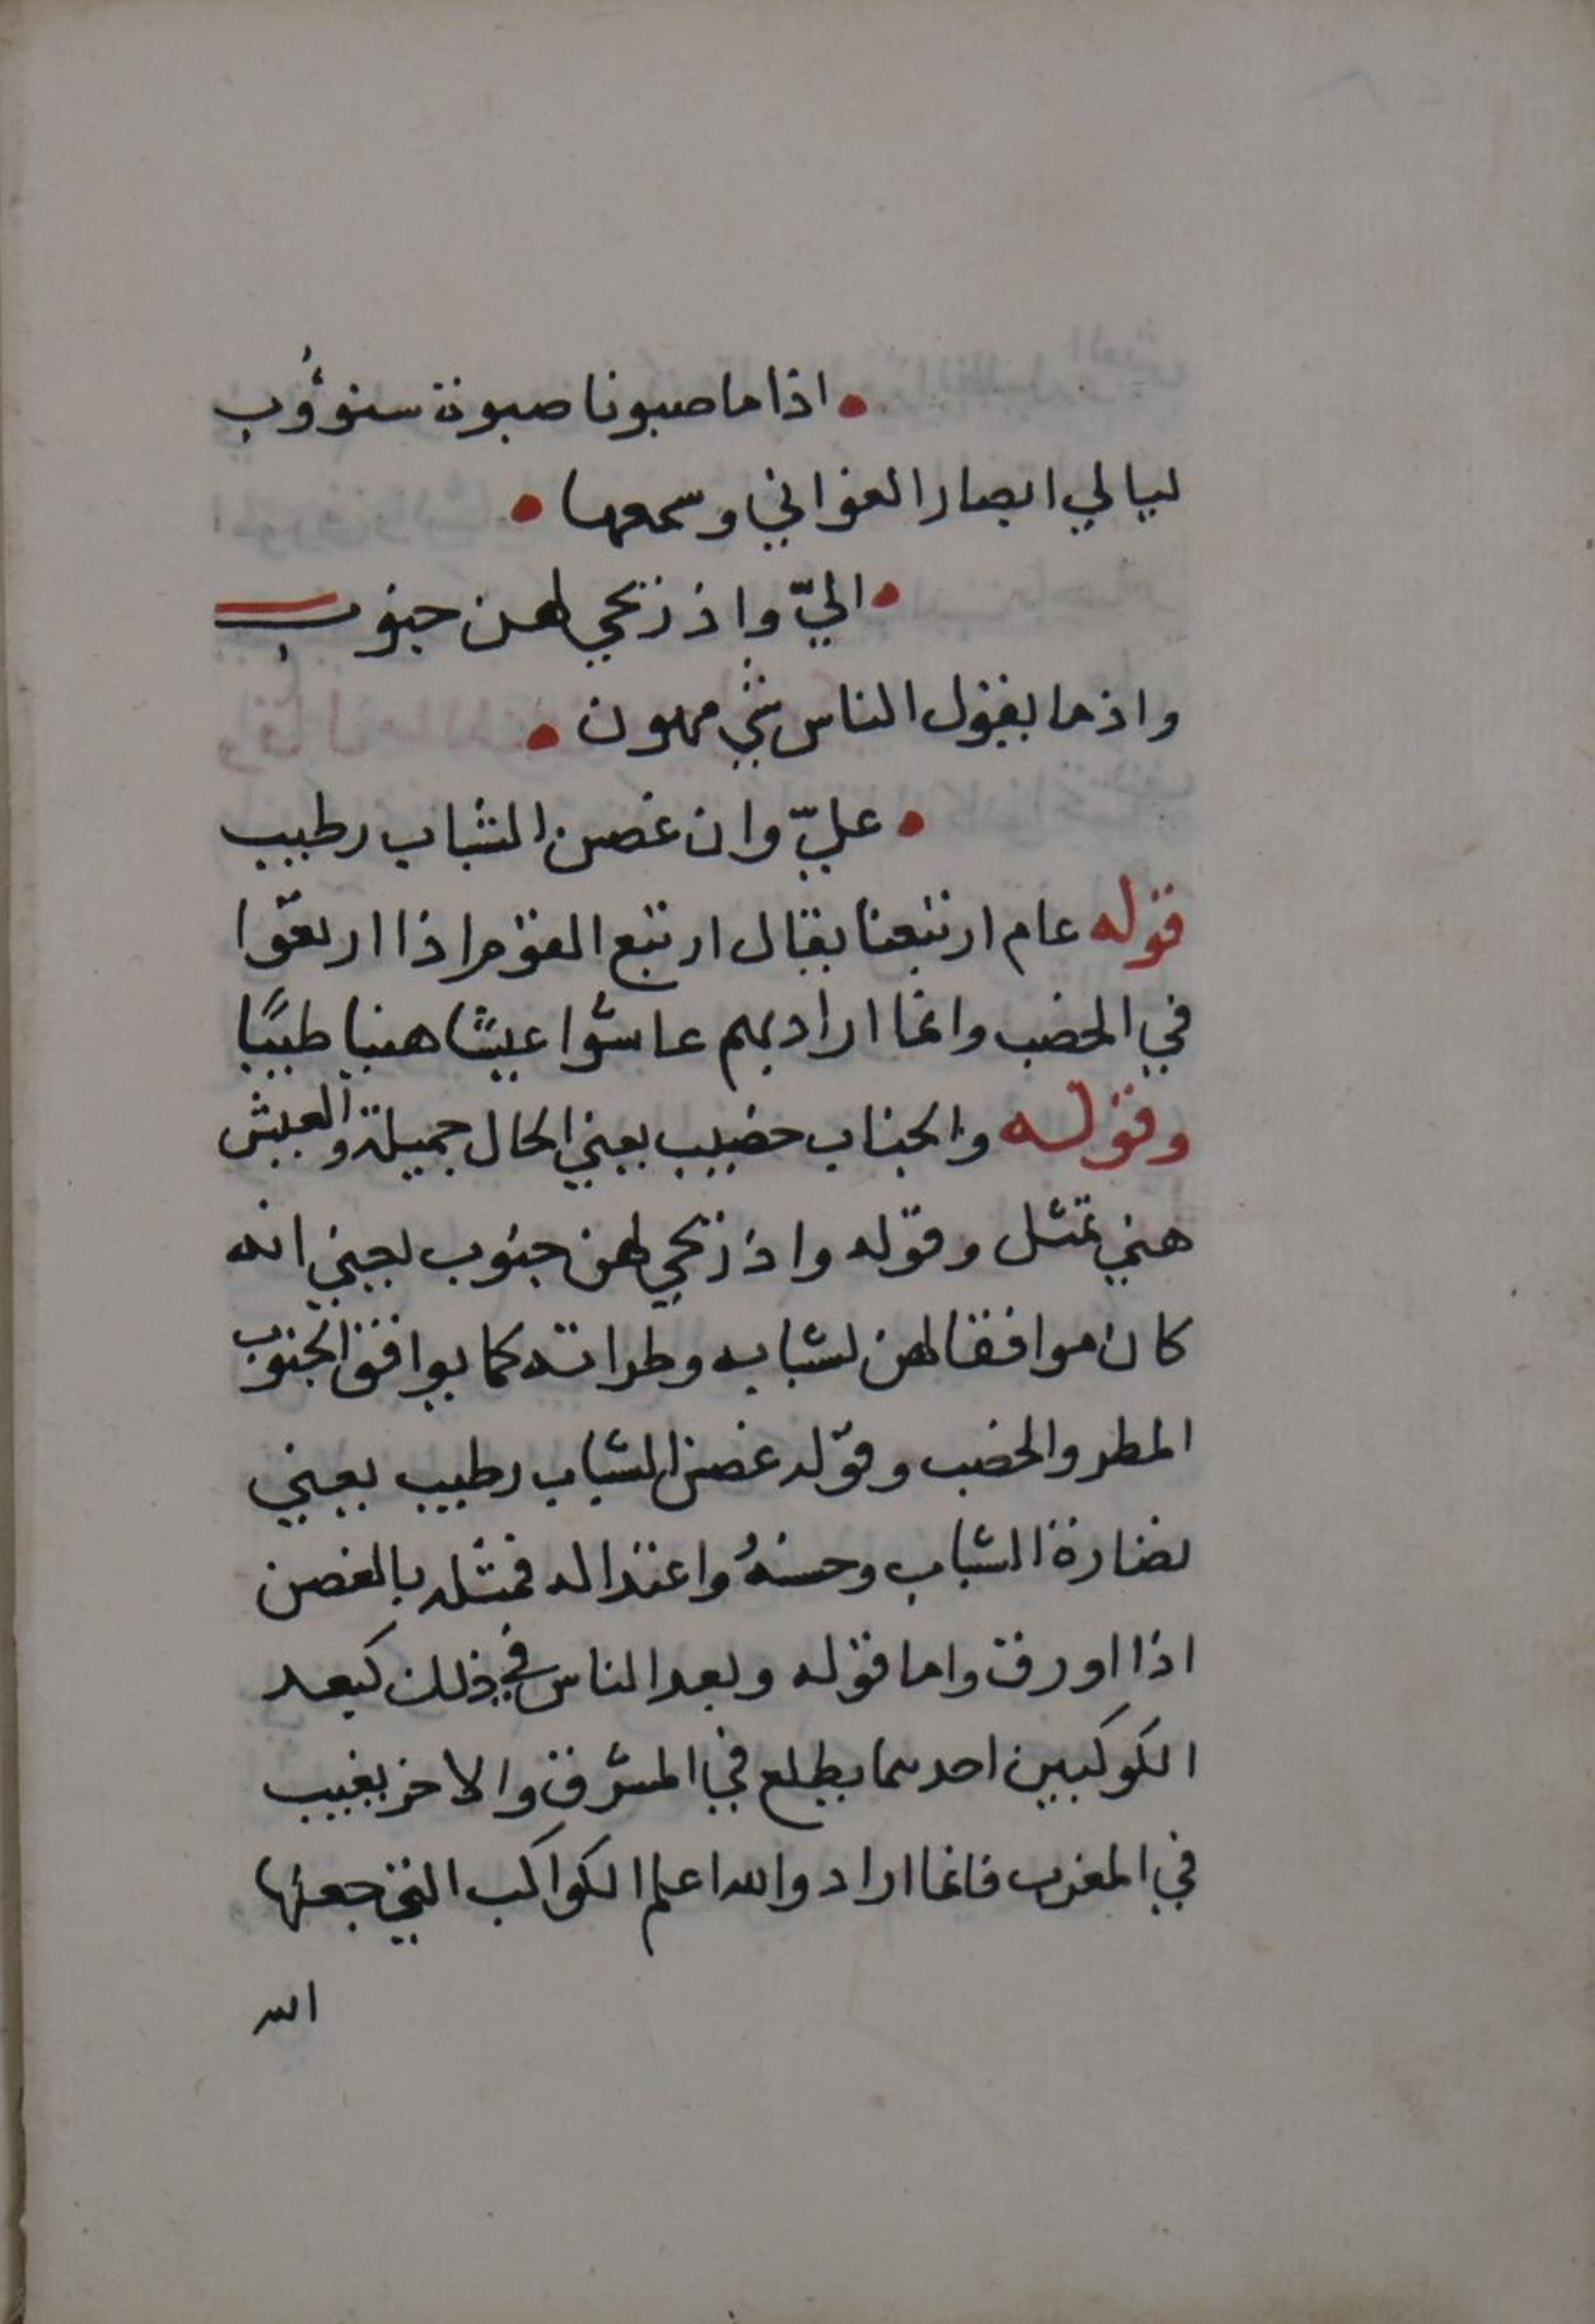 اذا ما صبونا صبوة سنوؤب
ليالي ابصار الغواني وسمعها
اليّ واذ ريحي لهن جنوب
واذ ما يقول الناس شيء مهون
عليّ وان غصن الشباب رطيب
قوله عام ارتبعنا يقال ارتبع القوم اذا اربعوا
في الخصب وانما اراد بهم عاشوا عيشًا هنيا طيبًا
وقوله والجناب خصيب يعني الحال جميلة والعيش
هني تمثل وقوله واذ ريحي لهن جنوب يعني انه
كان موافقا لهن لشبابه وطراته كما يوافق الجنوب
المطر والخصب وقوله غصن الشباب رطيب يعني
نضارة الشباب وحسنهُ واعتداله فمثله بالغصن
اذا اورق واما قوله وبعد الناس في ذلك كبعد
الكوكبين احدهما يطلع في المشرق والاخر يغيب
في المغرب فانما اراد والله اعلم الكواكب التي جعلها
الله